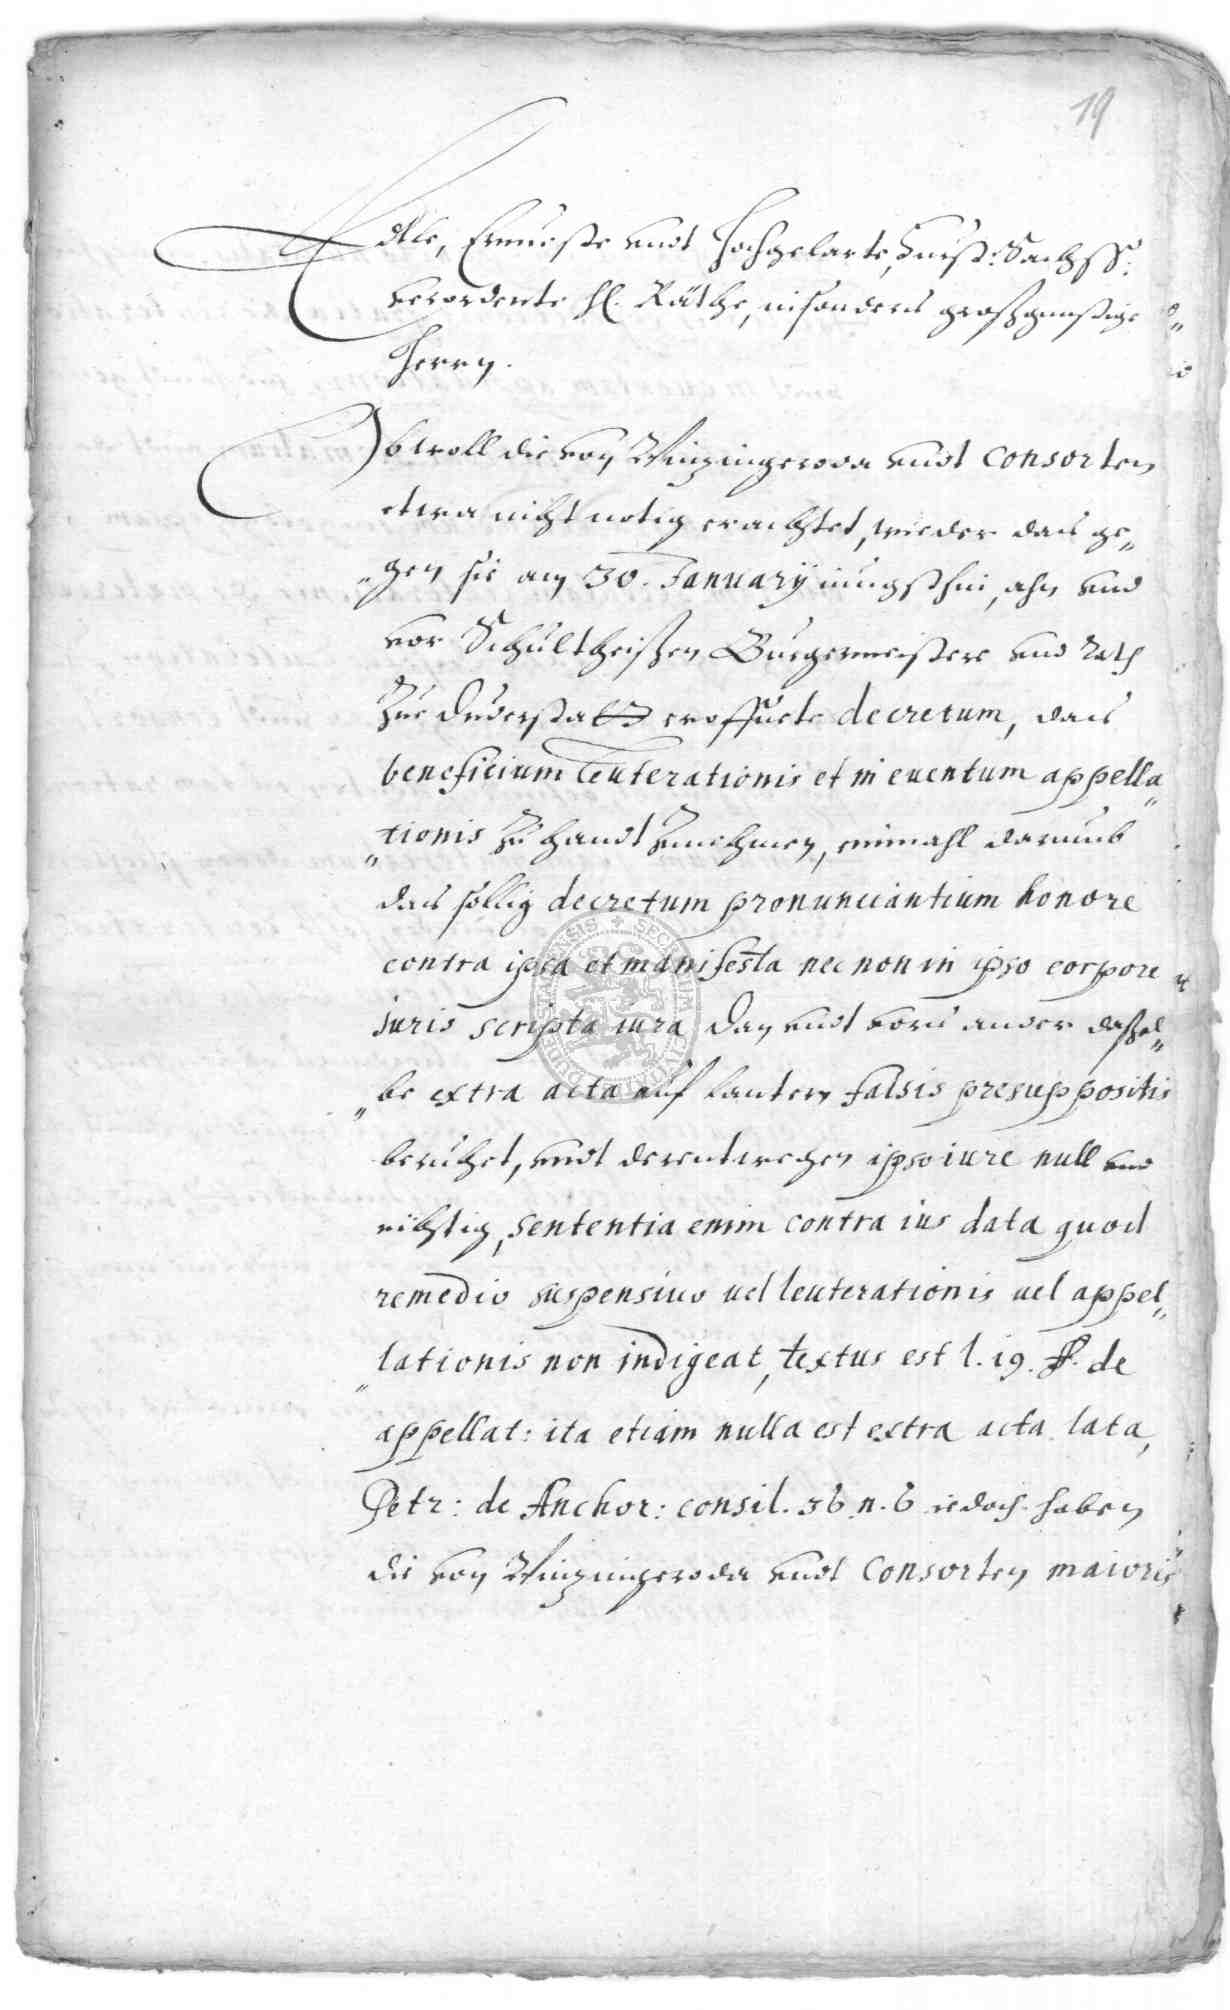 19
Edle, Ernueste vndt Hochgelarte, Furst: Sächss:
verordente H. Räthe, insonders großgunstige
Herrn.
Obwoll die von Wintzingeroda vndt Consorten
etwa nicht notig erachtet, wieder das ge„
„gen sie am 30. January iungsthin, ahn vnd
vor Schultheißen Burgermeistere vnd Rath
Zue Duderstadt eroffnete decretum, das
beneficium leuterationis et in euentum appella„
„tionis Zu handt Zunehmen, einmahl darumb
das sollig decretum pronunciantium honore
contra ipsa et manifesta nec non in ipso corpore
iuris scripta iura dan vndt vors ander daßel„
„be extra acta auf lautern falsis presuppositis
beruhet, vndt derentwegen ipso iure null vnd
nichtig, sententia enim contra ius data quod
remedio suspensiuo uel leuterationis uel appel„
„lationis non indigeat, textus est l. 19. ff. de
appellat: ita etiam nulla est extra acta lata,
Petr: de Anchor: consil. 36 n. 6 iedoch haben
die von Wintzingeroda vndt Consorten maioris